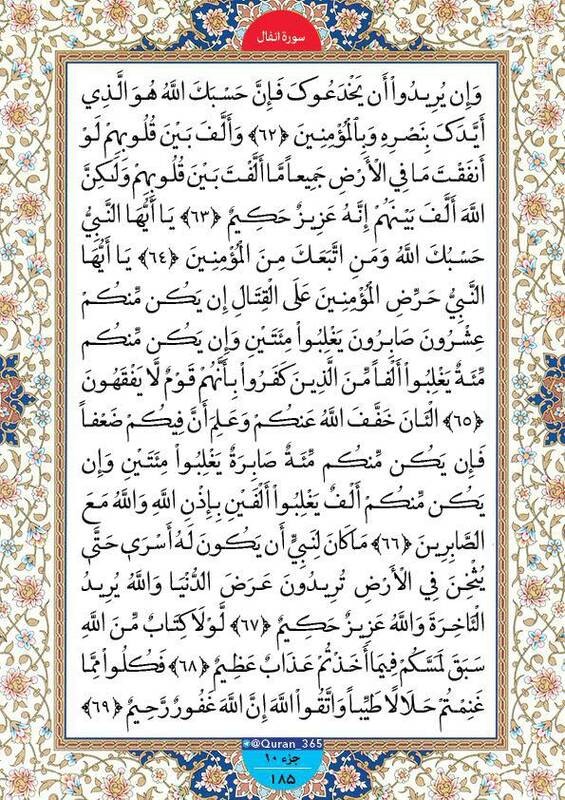 سورة انفال
وَإِن يُرِيدُواْ أَن يَخْدَعُوكَ فَإِنَّ حَسْبَكَ اللَّهُ هُوَ الَّذِي
أَيَّدَكَ بِنَصْرِهِ وَبِالْمُؤْمِنِينَ ﴿٦٢﴾ وَأَلَّفَ بَيْنَ قُلُوبِهِمْ لَوْ
أَنفَقْتَ مَا فِي الْأَرْضِ جَمِيعاً مَّا أَلَّفْتَ بَيْنَ قُلُوبِهِمْ وَلَكِنَّ
اللَّهَ أَلَّفَ بَيْنَهُمْ إِنَّهُ عَزِيزٌ حَكِيمٌ ﴿٦٣﴾ يَا أَيُّهَا النَّبِيُّ
حَسْبُكَ اللَّهُ وَمَنِ اتَّبَعَكَ مِنَ الْمُؤْمِنِينَ ﴿٦٤﴾ يَا أَيُّهَا
النَّبِيُّ حَرِّضِ الْمُؤْمِنِينَ عَلَى الْقِتَالِ إِن يَكُن مِّنكُمْ
عِشْرُونَ صَابِرُونَ يَغْلِبُواْ مِئَتَيْنِ وَإِن يَكُن مِّنكُم
مِّئَةٌ يَغْلِبُواْ أَلْفاً مِّنَ الَّذِينَ كَفَرُواْ بِأَنَّهُمْ قَوْمٌ لَّا يَفْقَهُونَ
﴿٦٥﴾ الْئَانَ خَفَّفَ اللَّهُ عَنكُمْ وَعَلِمَ أَنَّ فِيكُمْ ضَعْفاً
فَإِن يَكُن مِّنكُم مِّئَةٌ صَابِرَةٌ يَغْلِبُواْ مِئَتَيْنِ وَإِن
يَكُن مِّنكُمْ أَلْفٌ يَغْلِبُواْ أَلْفَيْنِ بِإِذْنِ اللَّهِ وَاللَّهُ مَعَ
الصَّابِرِينَ ﴿٦٦﴾ مَا كَانَ لِنَبِيٍّ أَن يَكُونَ لَهُ أَسْرَى حَتَّى
يُثْخِنَ فِي الْأَرْضِ تُرِيدُونَ عَرَضَ الدُّنْيَا وَاللَّهُ يُرِيدُ
الْئَاخِرَةَ وَاللَّهُ عَزِيزٌ حَكِيمٌ ﴿٦٧﴾ لَّوْلَا كِتَابٌ مِّنَ اللَّهِ
سَبَقَ لَمَسَّكُمْ فِيمَا أَخَذْتُمْ عَذَابٌ عَظِيمٌ ﴿٦٨﴾ فَكُلُواْ مِمَّا
غَنِمْتُمْ حَلَالًا طَيِّباً وَاتَّقُواْ اللَّهَ إِنَّ اللَّهَ غَفُورٌ رَّحِيمٌ ﴿٦٩﴾
@Quran_365
جزء ۱۰
۱۸۵